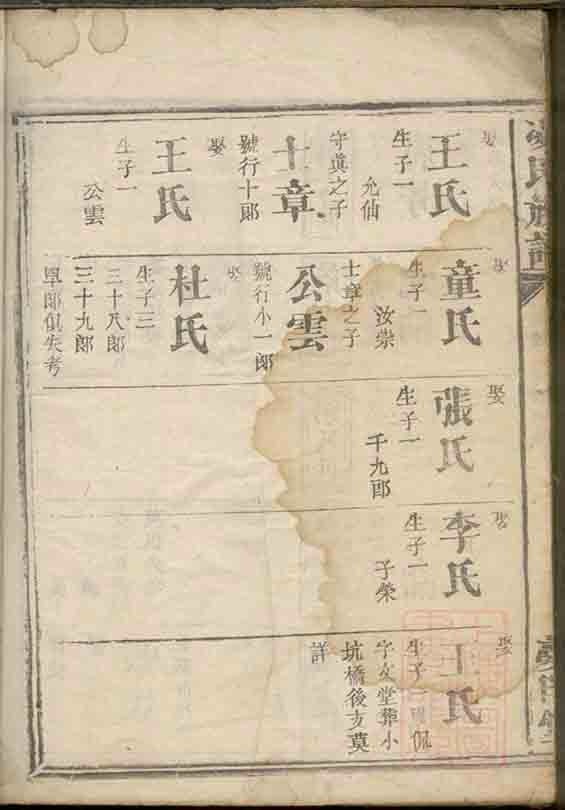 娶
王氏
生子一
允仙
守真之子
士章
號行十郎
娶
王氏
生子一
公雲
娶
童氏
生子一
汝崇
士章之子
公雲
號行小一郎
娶
杜氏
生子三
三十八郎
三十九郎
單郎俱失考
娶
張氏
生子一
千九郎
娶
李氏
生子一
子榮
娶
王氏
生子一
字文堂葬小
坑橋後支莫
詳
氏族譜